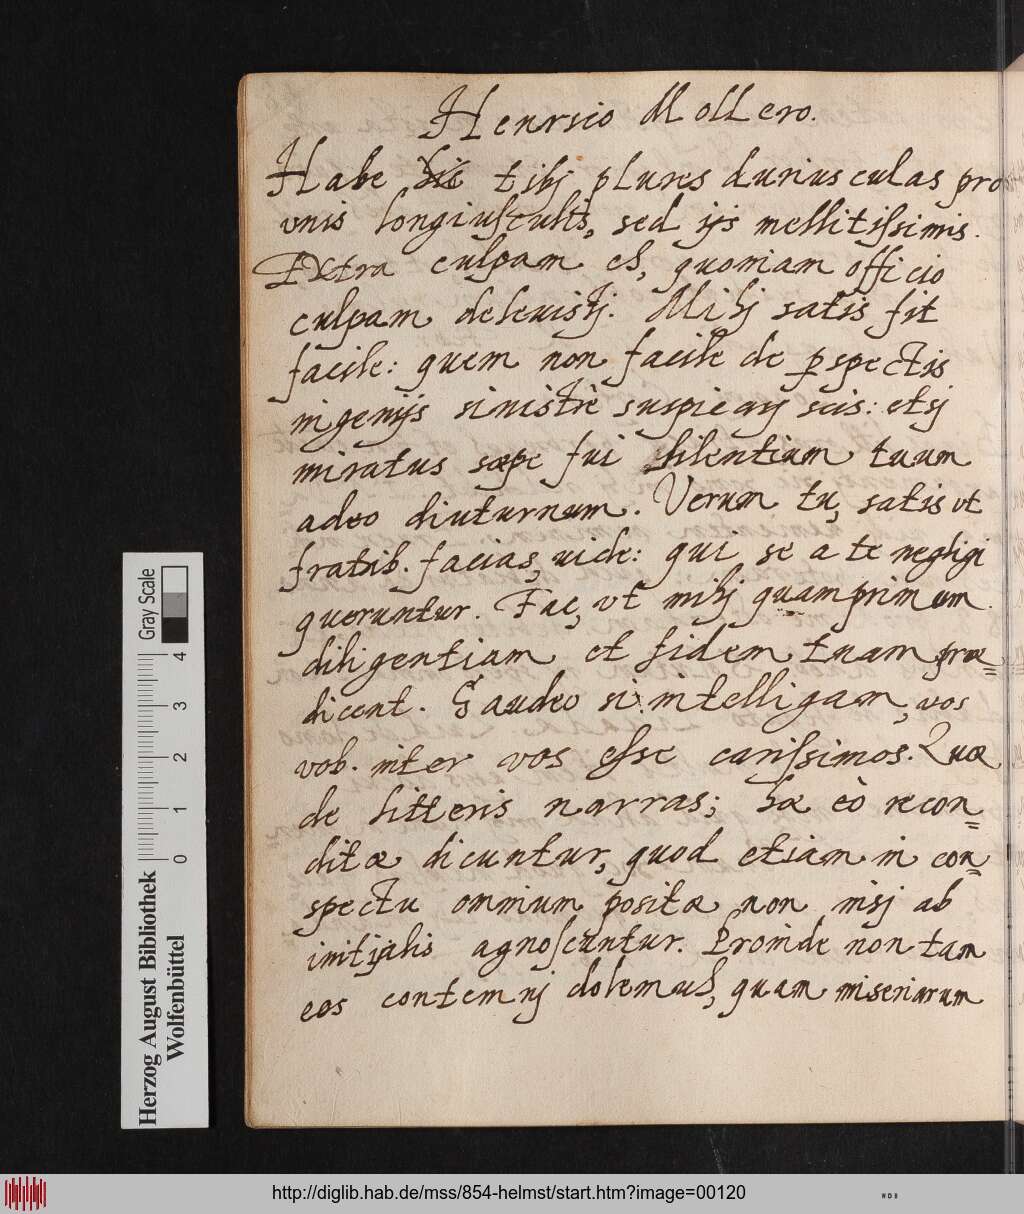 Henrico Mollero.
Habe tibj plures duriusculas pro
vnis longiusculis, sed ijs mellitissimis.
Extra culpam es, quoniam officio
culpam deleuistj. Mihj satis fit
facile: quem non facilè de pspectis
ingenijs sinistrè suspicarj scis: etsj
miratus sæpe fui silentium tuum
adeo diuturnum. Verum tu, satis vt
fratrib. facias, vide: qui se a te negligi
queruntur. Fac, vt mihj quamprimum
diligentiam et fidem tuam præ=
dicent. Gaudeo si intelligam, vos
vob. inter vos esse carissimos. Quæ
de litteris narras; hæ eò recon=
ditæ dicuntur, quod etiam in con=
spectu omnium positæ non nisj ab
initijalis agnoscuntur. Proinde non tam
eos contemnj dolemus, quam miseriarum
Herzog August Bibliothek
Wolfenbüttel
0 1 2 3 4
Gray Scale
http://diglib.hab.de/mss/854-helmst/start.htm?image=00120